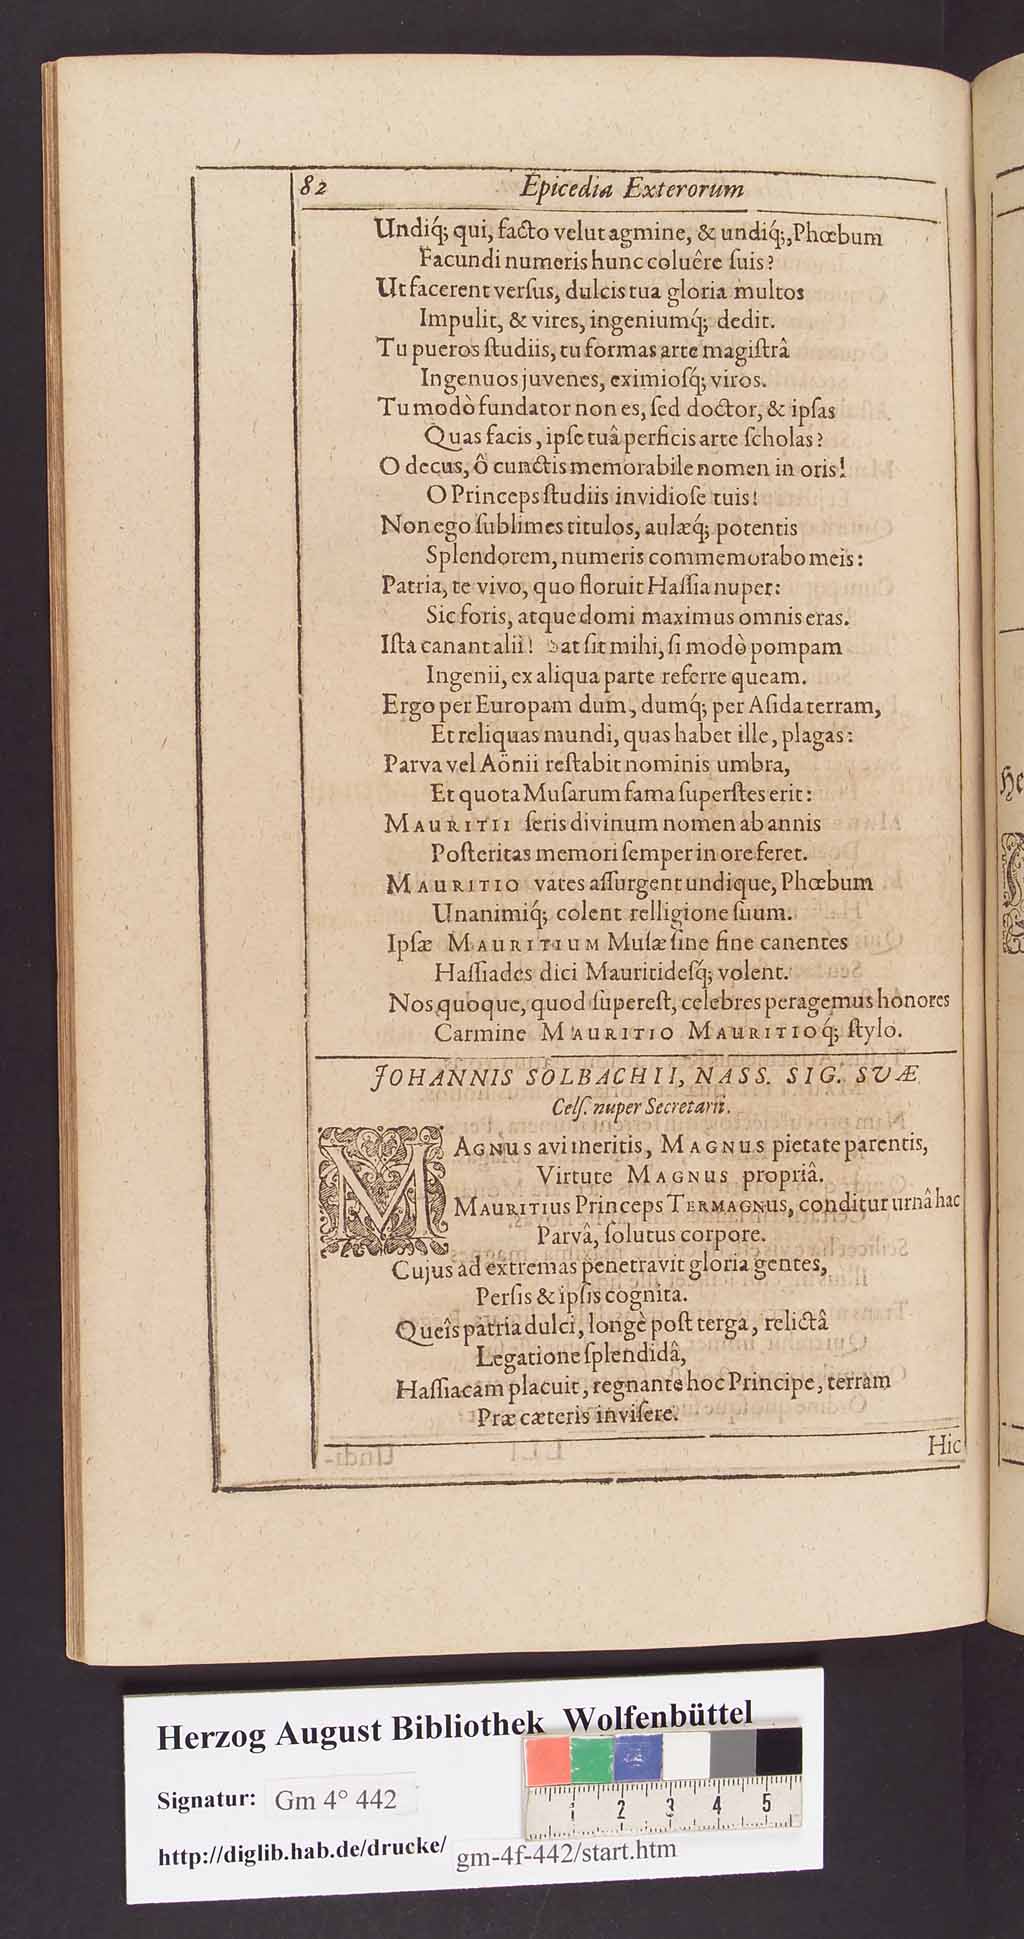 82 Epicedia Exterorum
Undiq́; qui, facto velut agmine, & undiq́;, Phœbum
Facundi numeris hunc coluêre ſuis?
Ut facerent verſus, dulcis tua gloria multos
Impulit, & vires, ingeniumq́; dedit.
Tu pueros ſtudiis, tu formas arte magiſtrâ
Ingenuos juvenes, eximioſq́; viros.
Tu modò fundator non es, ſed doctor, & ipſas
Quas facis, ipſe tuâ perficis arte ſcholas?
O decus, ô cunctis memorabile nomen in oris!
O Princeps ſtudiis invidioſe tuis!
Non ego ſublimes titulos, aulæq́; potentis
Splendorem, numeris commemorabo meis:
Patria, te vivo, quo floruit Haſſia nuper:
Sic foris, atque domi maximus omnis eras.
Iſta canant alii! Sat ſit mihi, ſi modò pompam
Ingenii, ex aliqua parte referre queam.
Ergo per Europam dum, dumq́; per Aſida terram,
Et reliquas mundi, quas habet ille, plagas:
Parva vel Aönii reſtabit nominis umbra,
Et quota Muſarum fama ſuperſtes erit:
MAURITII ſeris divinum nomen ab annis
Poſteritas memori ſemper in ore feret.
MAURITIO vates aſſurgent undique, Phœbum
Unanimiq́; colent relligione ſuum.
Ipſæ MAURITIUM Muſæ ſine fine canentes
Haſſiades dici Mauritideſq́; volent.
Nos quoque, quod ſupereſt, celebres peragemus honores
Carmine MAURITIO MAURITIOq́; ſtylo.
JOHANNIS SOLBACHII, NASS. SIG. SVÆ
Celſ. nuper Secretarii.
MAGNUS avi meritis, MAGNUS pietate parentis,
Virtute MAGNUS propriâ.
MAURITIUS Princeps TERMAGNUS, conditur urnâ hac
Parvâ, ſolutus corpore.
Cujus ad extremas penetravit gloria gentes,
Perſis & ipſis cognita.
Queîs patria dulci, longè poſt terga, relictâ
Legatione ſplendidâ,
Haſſiacam placuit, regnante hoc Principe, terram
Præ cæteris inviſere.
Hic
Herzog August Bibliothek Wolfenbüttel
Signatur: Gm 4° 442
http://diglib.hab.de/drucke/ gm-4f-442/start.htm
1 2 3 4 5